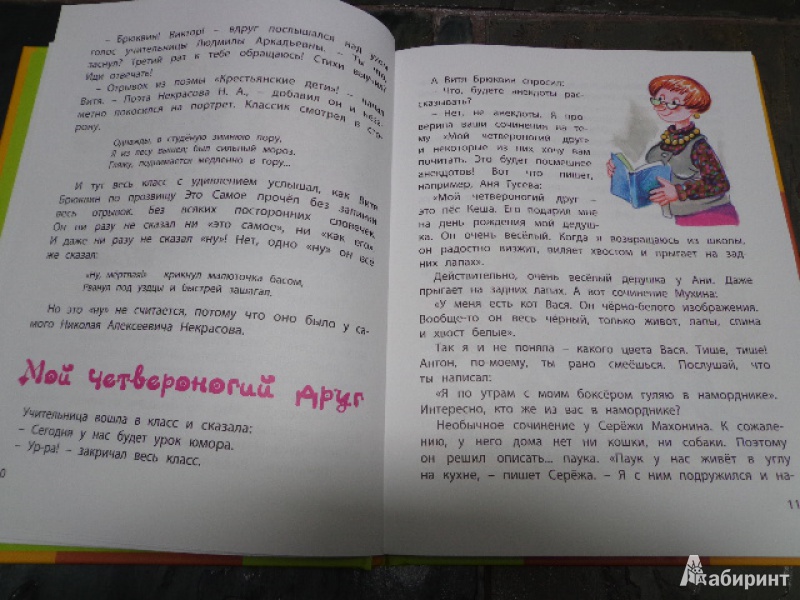 – Брюквин! Виктор! – вдруг послышался над ухом
голос учительницы Людмилы Аркадьевны. – Ты что,
заснул? Третий раз к тебе обращаюсь! Стихи выучил?
Иди отвечать!
– Отрывок из поэмы «Крестьянские дети», – начал
Витя. – Поэта Некрасова Н. А., – добавил он и неза-
метно покосился на портрет. Классик смотрел в сто-
рону.
Однажды, в студёную зимнюю пору,
Я из лесу вышел; был сильный мороз.
Гляжу, поднимается медленно в гору...
И тут весь класс с удивлением услышал, как Витя
Брюквин по прозвищу Это Самое прочёл без запинки
весь отрывок. Без всяких посторонних словечек.
Он ни разу не сказал ни «это самое», ни «как его».
И даже ни разу не сказал «ну»! Нет, одно «ну» он всё
же сказал:
«Ну, мёртвая!» – крикнул малюточка басом,
Рванул под уздцы и быстрей зашагал.
Но это «ну» не считается, потому что оно было у са-
мого Николая Алексеевича Некрасова.
Мой четвероногий друг
Учительница вошла в класс и сказала:
– Сегодня у нас будет урок юмора.
– Ур-ра! – закричал весь класс.
0
А Витя Брюквин спросил:
– Что, будете анекдоты рас-
сказывать?
– Нет, не анекдоты. Я про-
верила ваши сочинения на те-
му «Мой четвероногий друг»
и некоторые из них хочу вам
почитать. Это будет посмешнее
анекдотов! Вот что пишет,
например, Аня Гусева:
«Мой четвероногий друг –
это пёс Кеша. Его подарил мне
на день рождения мой дедуш-
ка. Он очень весёлый. Когда я возвращаюсь из школы,
он радостно визжит, виляет хвостом и прыгает на зад-
них лапах».
Действительно, очень весёлый дедушка у Ани. Даже
прыгает на задних лапах. А вот сочинение Мухина:
«У меня есть кот Вася. Он чёрно-белого изображения.
Вообще-то он весь чёрный, только живот, лапы, спина
и хвост белые».
Так я и не поняла – какого цвета Вася. Тише, тише!
Антон, по-моему, ты рано смеёшься. Послушай, что
ты написал:
«Я по утрам с моим боксёром гуляю в наморднике».
Интересно, кто же из вас в наморднике?
Необычное сочинение у Серёжи Махонина. К сожале-
нию, у него дома нет ни кошки, ни собаки. Поэтому
он решил описать... паука. «Паук у нас живёт в углу
на кухне, – пишет Серёжа. – Я с ним подружился и на-
11
Лабиринт